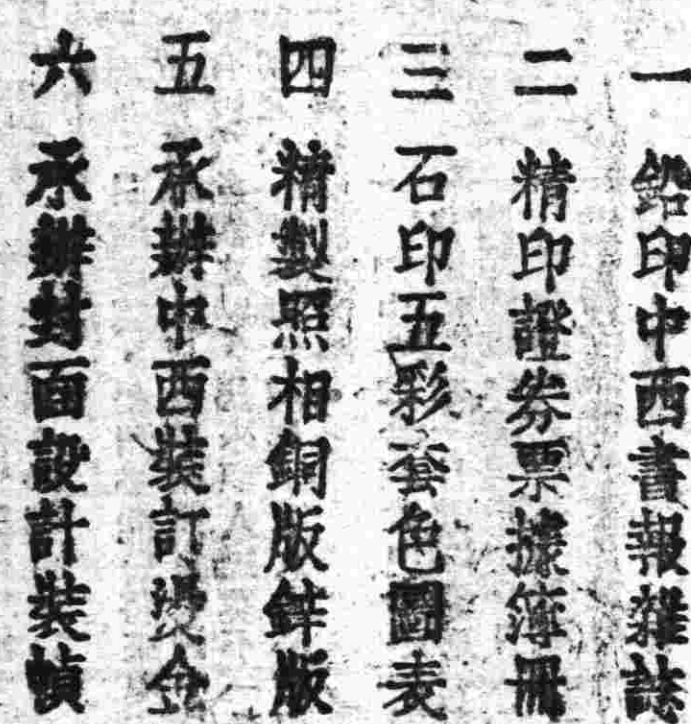 一 鉛印中西書報雜誌
二 精印證券票據簿冊
三 石印五彩套色圖表
四 精製照相銅版鋅版
五 承辦中西裝訂燙金
六 承辦封面設計裝幀